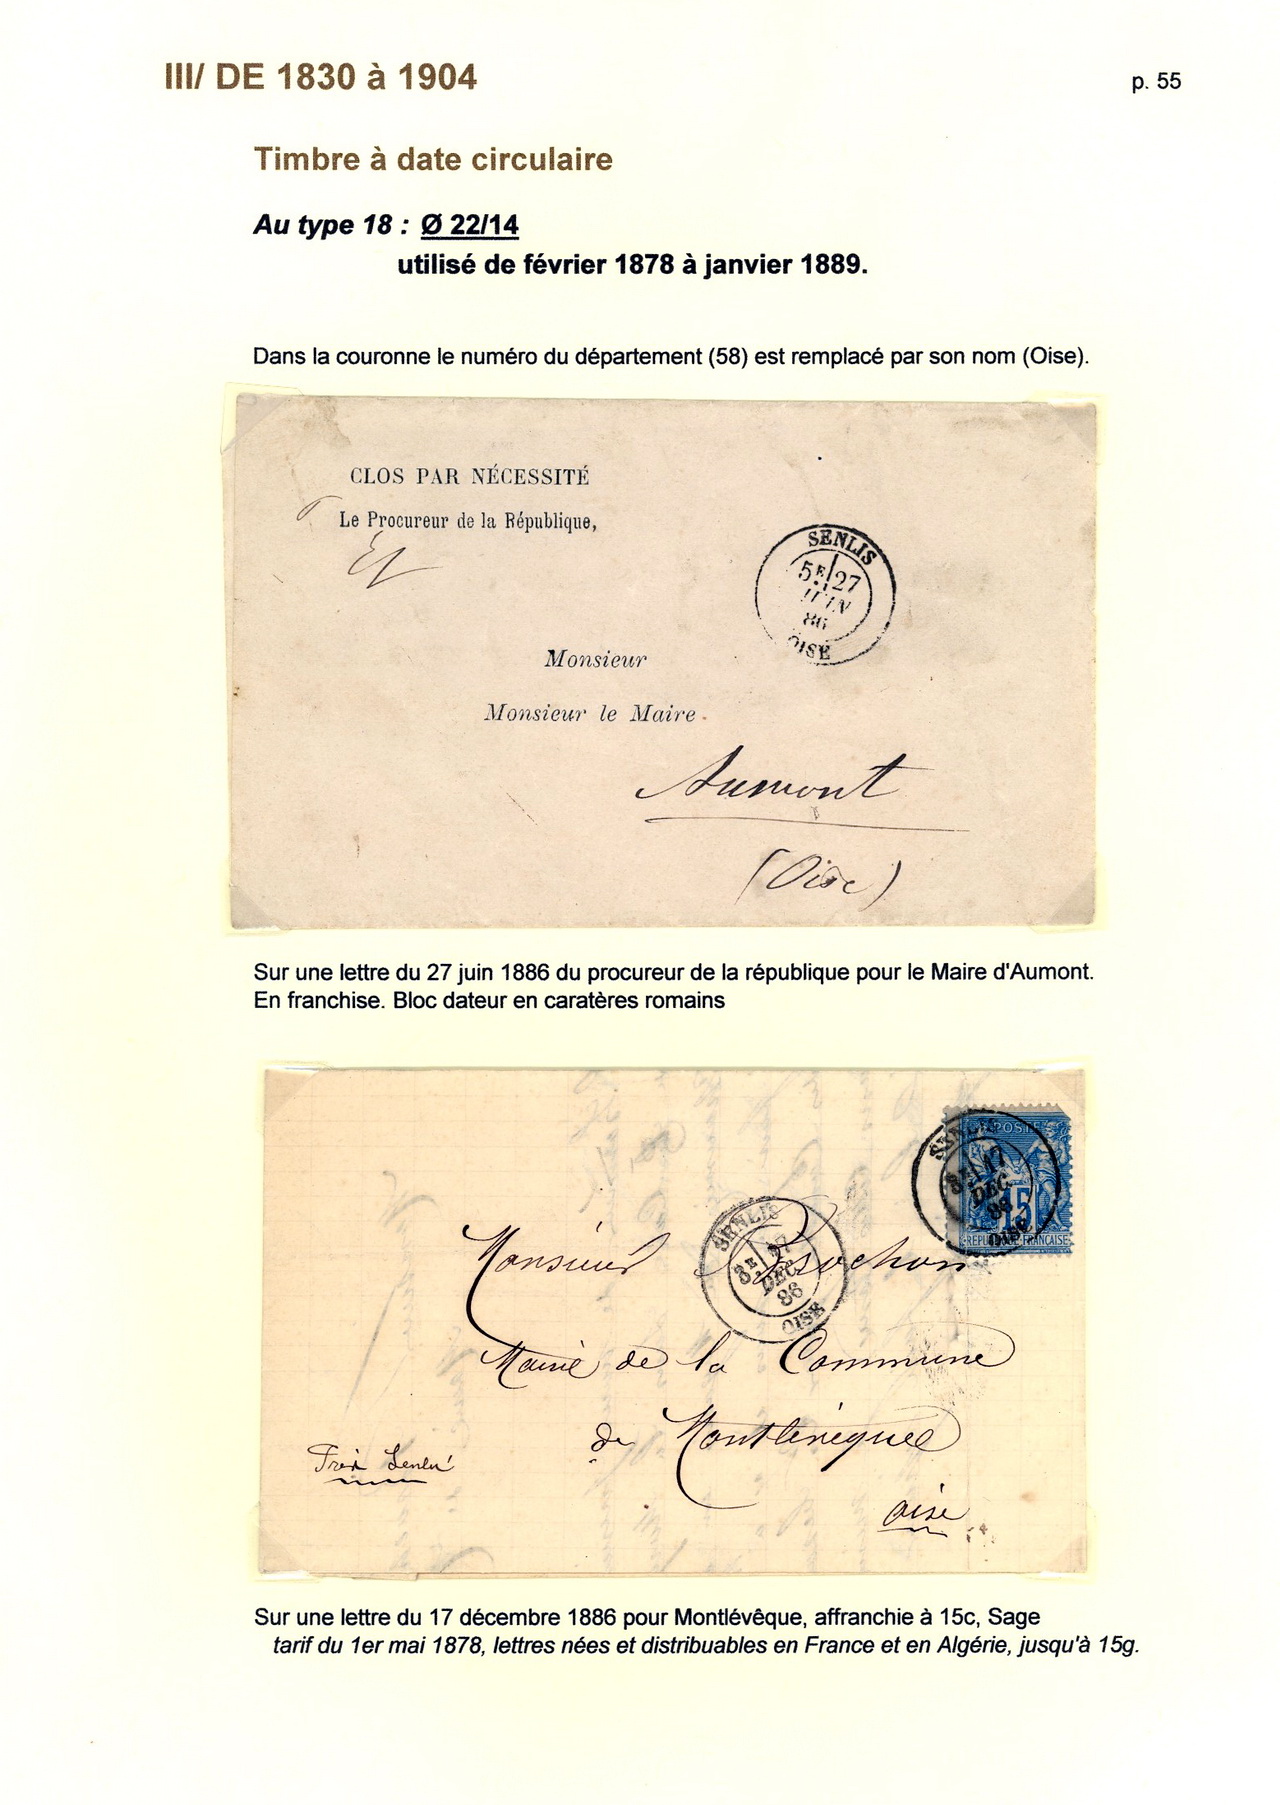 III/ DE 1830 à 1904
p. 55
Timbre à date circulaire
Au type 18 : Ø 22/14
utilisé de février 1878 à janvier 1889.
Dans la couronne le numéro du département (58) est remplacé par son nom (Oise).
CLOS PAR NÉCESSITÉ
Le Procureur de la République,
SENLIS
5E 27
JUIN
86
OISE
Monsieur
Monsieur le Maire.
Aumont
(Oise)
Sur une lettre du 27 juin 1886 du procureur de la république pour le Maire d'Aumont.
En franchise. Bloc dateur en caratères romains
POSTE
15
RÉPUBLIQUE FRANÇAISE
SENLIS
17
DEC
86
OISE
SENLIS
3E 17
DEC
86
OISE
Monsieur
Maire de la Commune
de Montlévêque
Près Senlis
Oise
Sur une lettre du 17 décembre 1886 pour Montlévêque, affranchie à 15c, Sage
tarif du 1er mai 1878, lettres nées et distribuables en France et en Algérie, jusqu'à 15g.